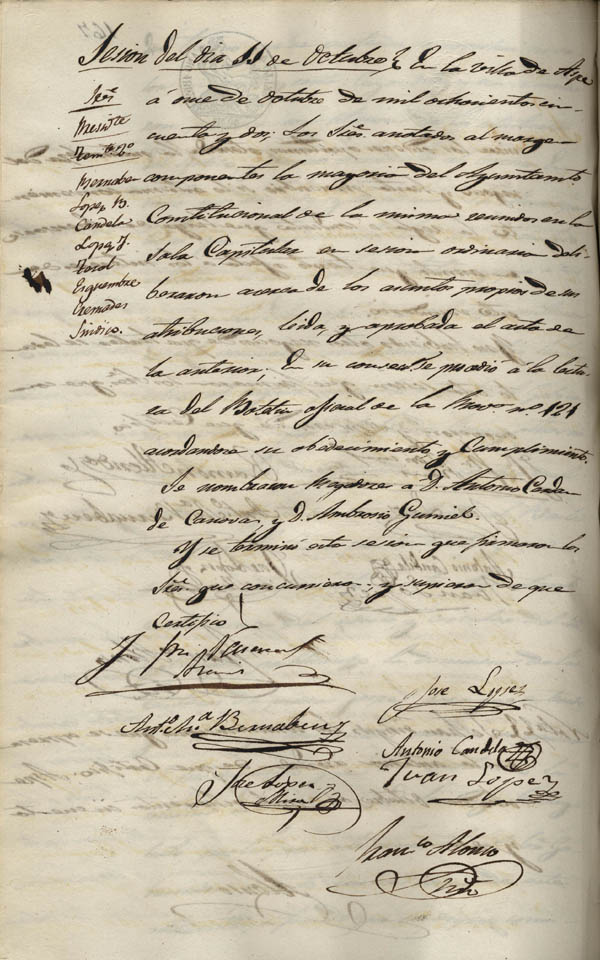 Sesion del dia 11 de Octubre
En la villa de Aspe
á once de Octubre de mil ochocientos cin-
cuenta y dos; los Sres. anotados al margen
componentes la mayoria del Ayuntamto.
Constitucional de la misma reunidos en la
Sala Capitular en sesion ordinaria deli-
beraron acerca de los asuntos propios de sus
atribuciones, leida, y aprobada el acta de
la anterior; En su consecte. se procedió á la lectu-
ra del Boletin oficial de la Prova. nº. 121
acordandose su obedecimiento, y cumplimiento.
Se nombraron a D. Antonio
de Canova, y D. Ambrosio Gumiel.
Y se terminó esta sesion que firmaron los
Sres. que concurrieron y supieron de que
Certifico
Sres.
Presidte.
Tente. 2º
Bernabeu
Lopez B.
Candela
Lopez J.
Torol
Esquembre
Cremades
Sindico.
José Lopez
Anto. Ma. Bernabeu
Antonio Candela
Jose Lopez
Juan Lopez
Franco. Alonso
Srio